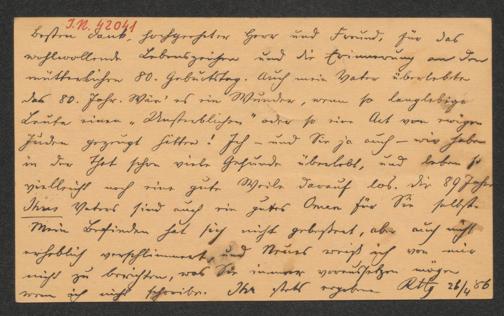 I.N. 42041
Besten Dank, hochgeehrter Herr und Freund, für das
wohlwollende Lebenszeichen und die Erinnerung an den
mütterlichen 80. Geburtstag. Auch mein Vater überlebte
das 80. Jahr. Wär' es ein Wunder, wenn so langlebige
Leute einen „Unsterblichen" oder so eine Art von ewigen
Juden gezeugt hätten? Ich – und Sie ja auch – wir haben
in der That schon viele Gesunde überlebt, und leben so
vielleicht noch eine gute Weile darauf los. Die 89 Jahre
Ihres Vaters sind auch ein gutes Omen für Sie selbst.
Mein Befinden hat sich nicht gebessert, aber auch nicht
erheblich verschlimmert, und Neues weiß ich von mir
nicht zu berichten, was Sie immer voraussetzen mögen
wenn ich nicht schreibe. Ihr stets ergebener 26/4 86